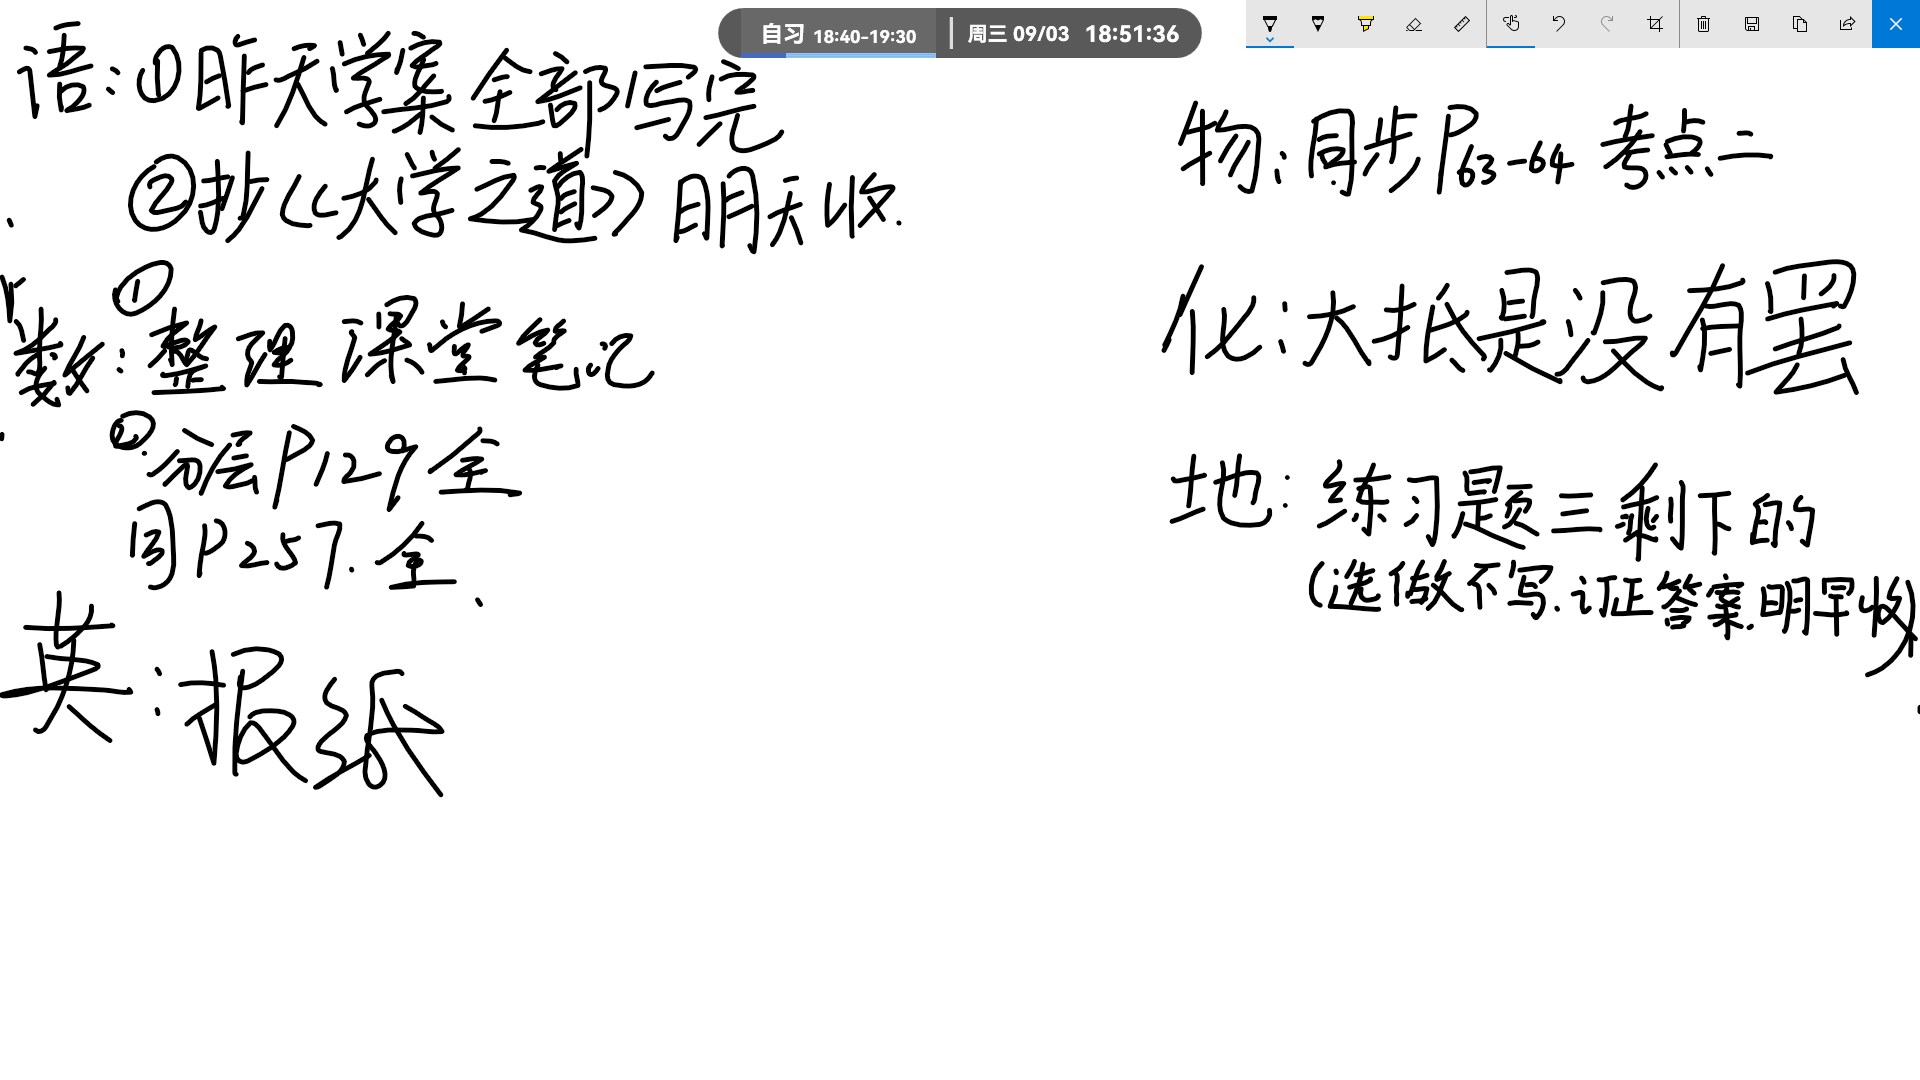 自习 18:40-19:30 周三 09/03 18:51:36
语:①昨天学案全部写完
②抄《大学之道》明天收.
数:①整理课堂笔记
②分层P129全
同P257.全、
英:报纸
物:同步P63-64 考点二
化:大抵是没有罢
地:练习题三剩下的
(选做不写.订正答案.明早收)